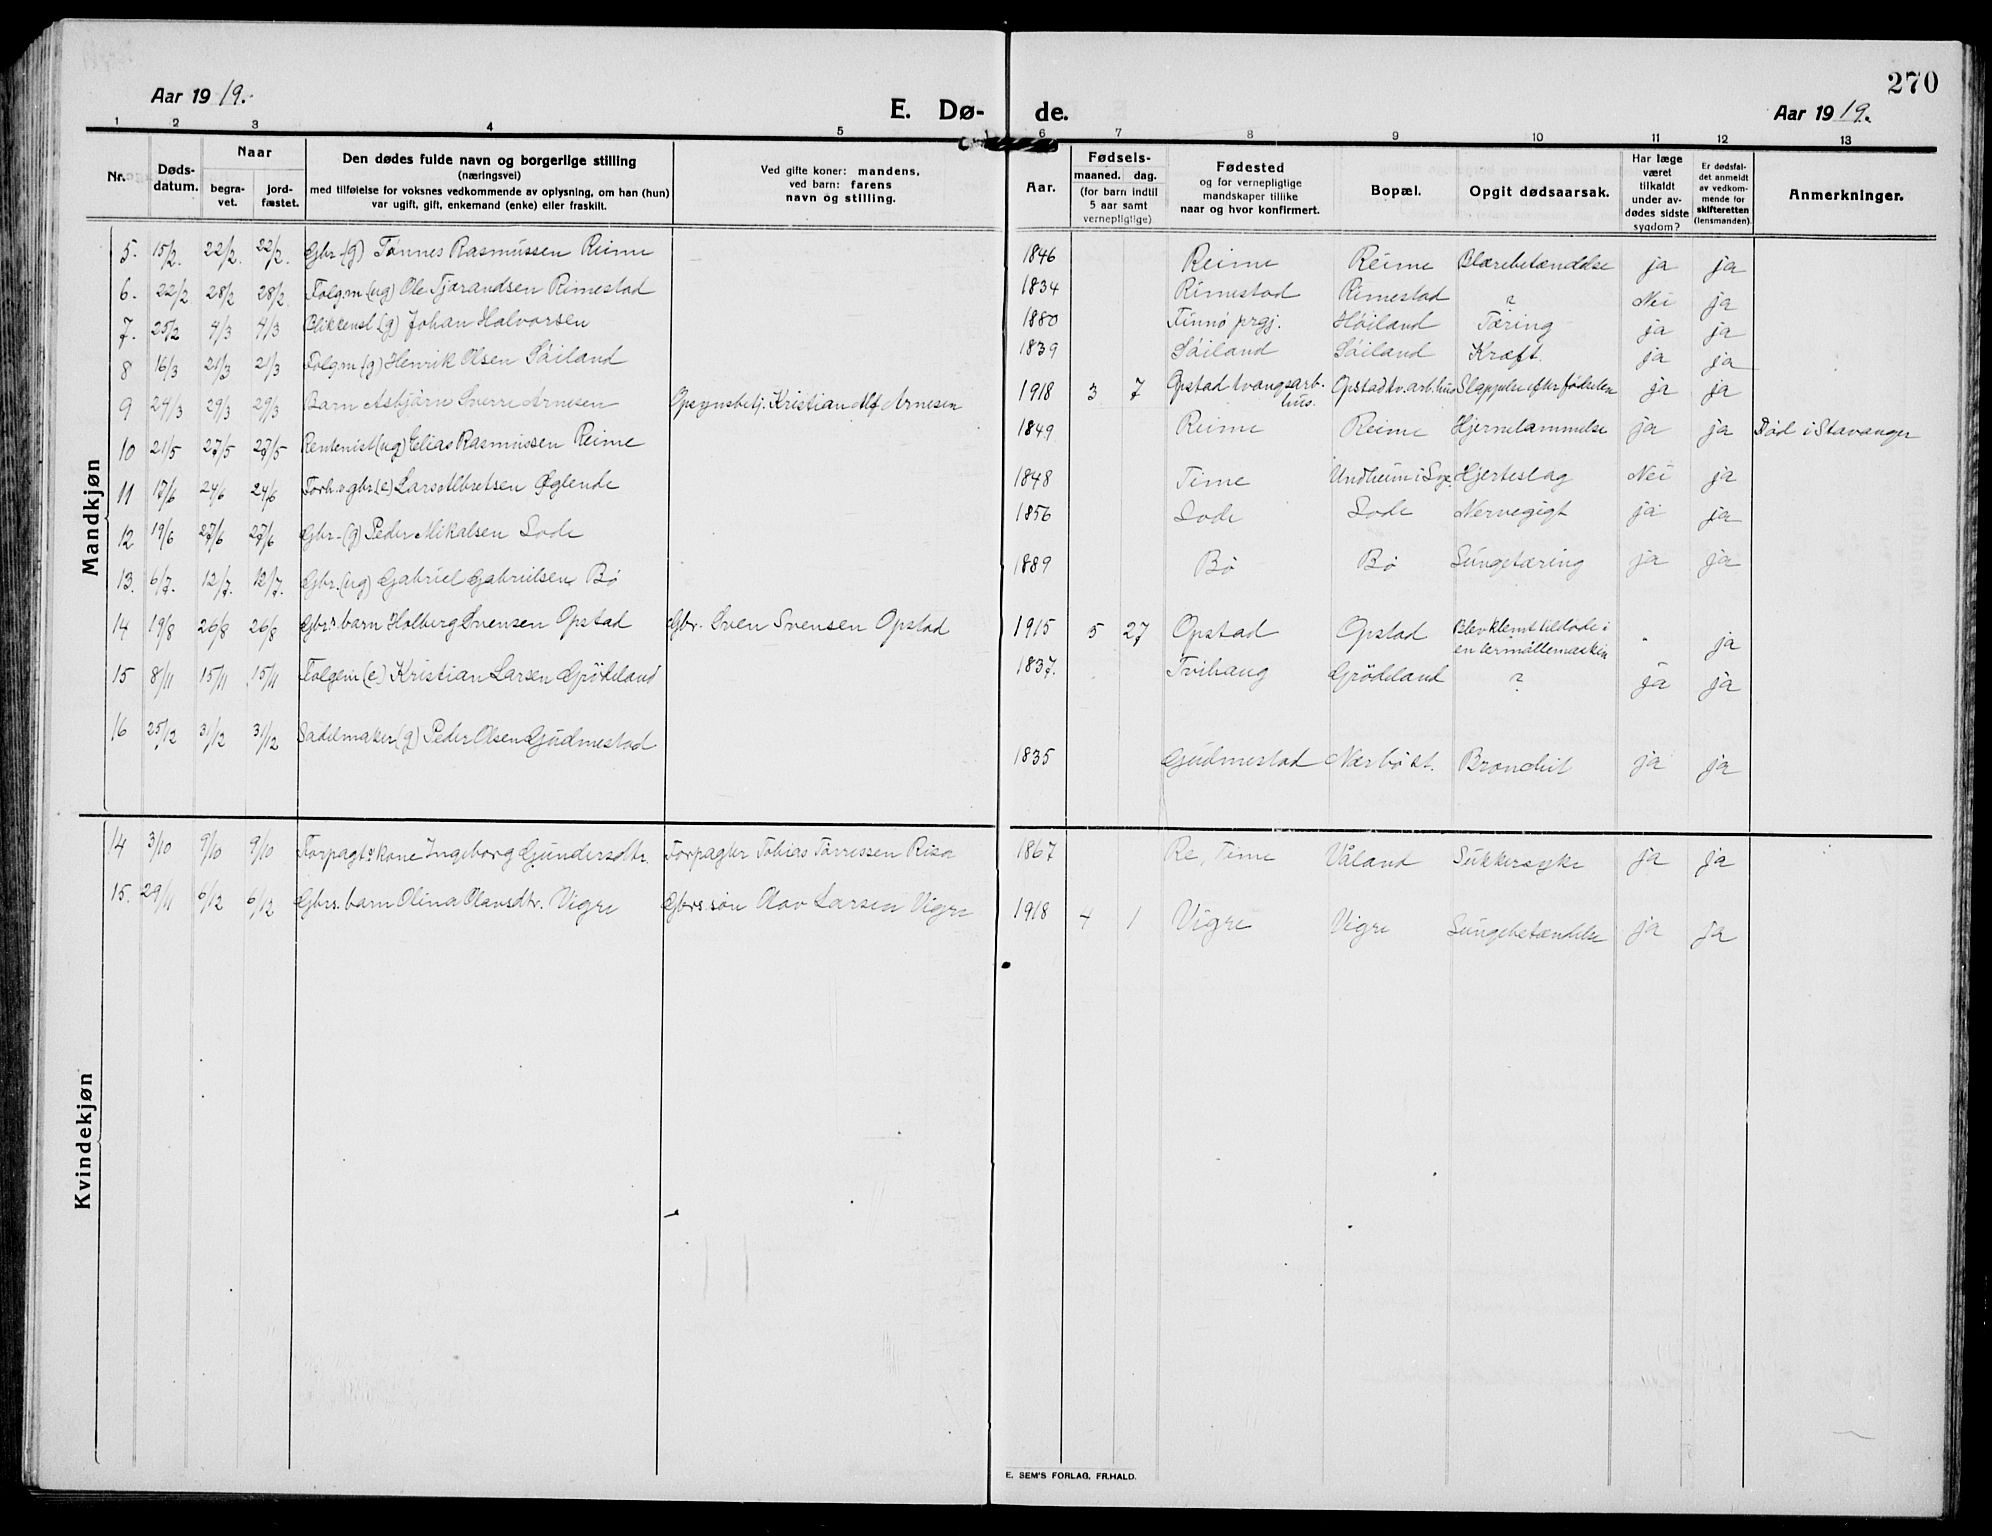 270
Aar 1919.
E. Dø- de.
Aar 1919.
1 2 3 4 5 6 7 8 9 10 11 12 13
Nr.
Døds-
datum.
Naar
begra-
vet.
jord-
fæstet.
Den dødes fulde navn og borgerlige stilling
(næringsvei)
med tilføielse for voksnes vedkommende av oplysning, om han (hun)
var ugift, gift, enkemand (enke) eller fraskilt.
Ved gifte koner: mandens,
ved barn: farens
navn og stilling.
Aar.
Fødsels-
maaned. dag.
(for barn indtil
5 aar samt
vernepligtige)
Fødested
og for vernepligtige
mandskaper tillike
naar og hvor konfirmert.
Bopæl.
Opgit dødsaarsak.
Har læge
været
tilkaldt
under av-
dødes sidste
sygdom?
Er dødsfal-
det anmeldt
av vedkom-
mende for
skifteretten
(lensmanden).
Anmerkninger.
Mandkjøn
5. 15/2. 22/2. 22/2. Gbr. (g) Tønnes Rasmussen Reime 1846 Reime Reime Blærebetændelse ja ja
6. 22/2 28/2 28/2. Folgm (ug) Ole Tjørandsen Rimestad 1834 Rimestad Rimestad ? Nei ja
7. 25/2 4/3 4/3 Blikkensl (g) Johan Halvorsen 1880 Finnø prgj. Høiland Tæring ja ja
8 16/3 21/3 21/3 Folgm. (g) Henrik Olsen Søiland 1839 Søiland Søiland Kræft. ja ja
9 24/3 29/3 29/3 Barn Asbjørn Sverre Arnesen Opsynsbetj. Kristian Alf Arnesen 1918 3 7 Opstad tvangsarb.hus. Opstad tv.arb.hus Slappelse efter fødselen ja ja
10 21/5 27/5 27/5 Rentenist (ug) Elias Rasmussen Reime 1849 Reime Reime Hjernelammelse ja ja Død i Stavanger
11 17/6 24/6 24/6 Forh.v. gbr. (e) Lars Albretsen Øglende 1848 Time Undheim i Hjerteslag Nei ja
12 19/6 27/6 27/6 Gbr. (g) Peder Mikalsen Lode 1856 Lode Lode Nervegigt ja ja
13. 6/7. 12/7. 12/7. Gbr. (ug) Gabriel Gabrielsen Bø 1889 Bø Bø Lungetæring ja ja
14 19/8 26/8 26/8 Gbrs. barn Holberg Svensen Opstad Gbr. Sven Svensen Opstad 1915 5 27 Opstad Opstad Blev klemt tildøde i
en termøllemaskin - ja
15 8/11 15/11 15/11 Folgem (e) Kristian Larsen Grødeland 1837. Tvihaug Grødeland ? ja ja
16 25/12 31/12 31/12 Sadelmaker (g) Peder Olsen Gudmestad 1835 Gudmestad Nærbø st. Bronchit ja ja
Kvindekjøn
14 3/10 9/10 9/10 Forpagt.s kone Ingeborg Gundersdtr. Forpagter Tobias Torressen Risa 1867 Re, Time Våland Sukkersyke ja ja
15. 29/11 6/12 6/12 Gbrs. barn Olina Olavsdtr. Vigre Gbrs. søn Olav Larsen Vigre 1918 4 1 Vigre Vigre Lungebetændelse ja ja
E. SEM'S FORLAG, FR.HALD.